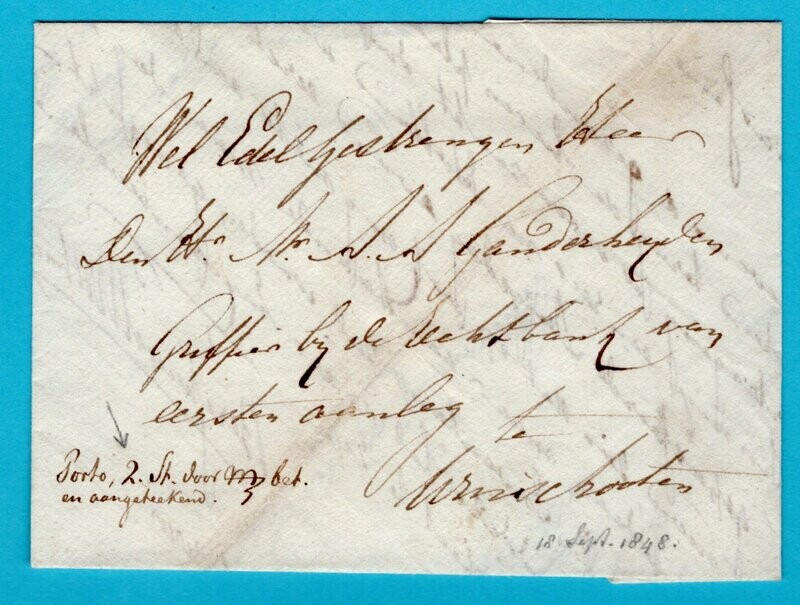 Wel Edel Gestrengen Heer
Den Hr. Mr. A. A. Ganderheyden
Griffier by de Rechtbank van
eersten aanleg
te
Winschoten
Porto, 2. St. door my bet.
en aangeteekend.
18 Sept. 1848.